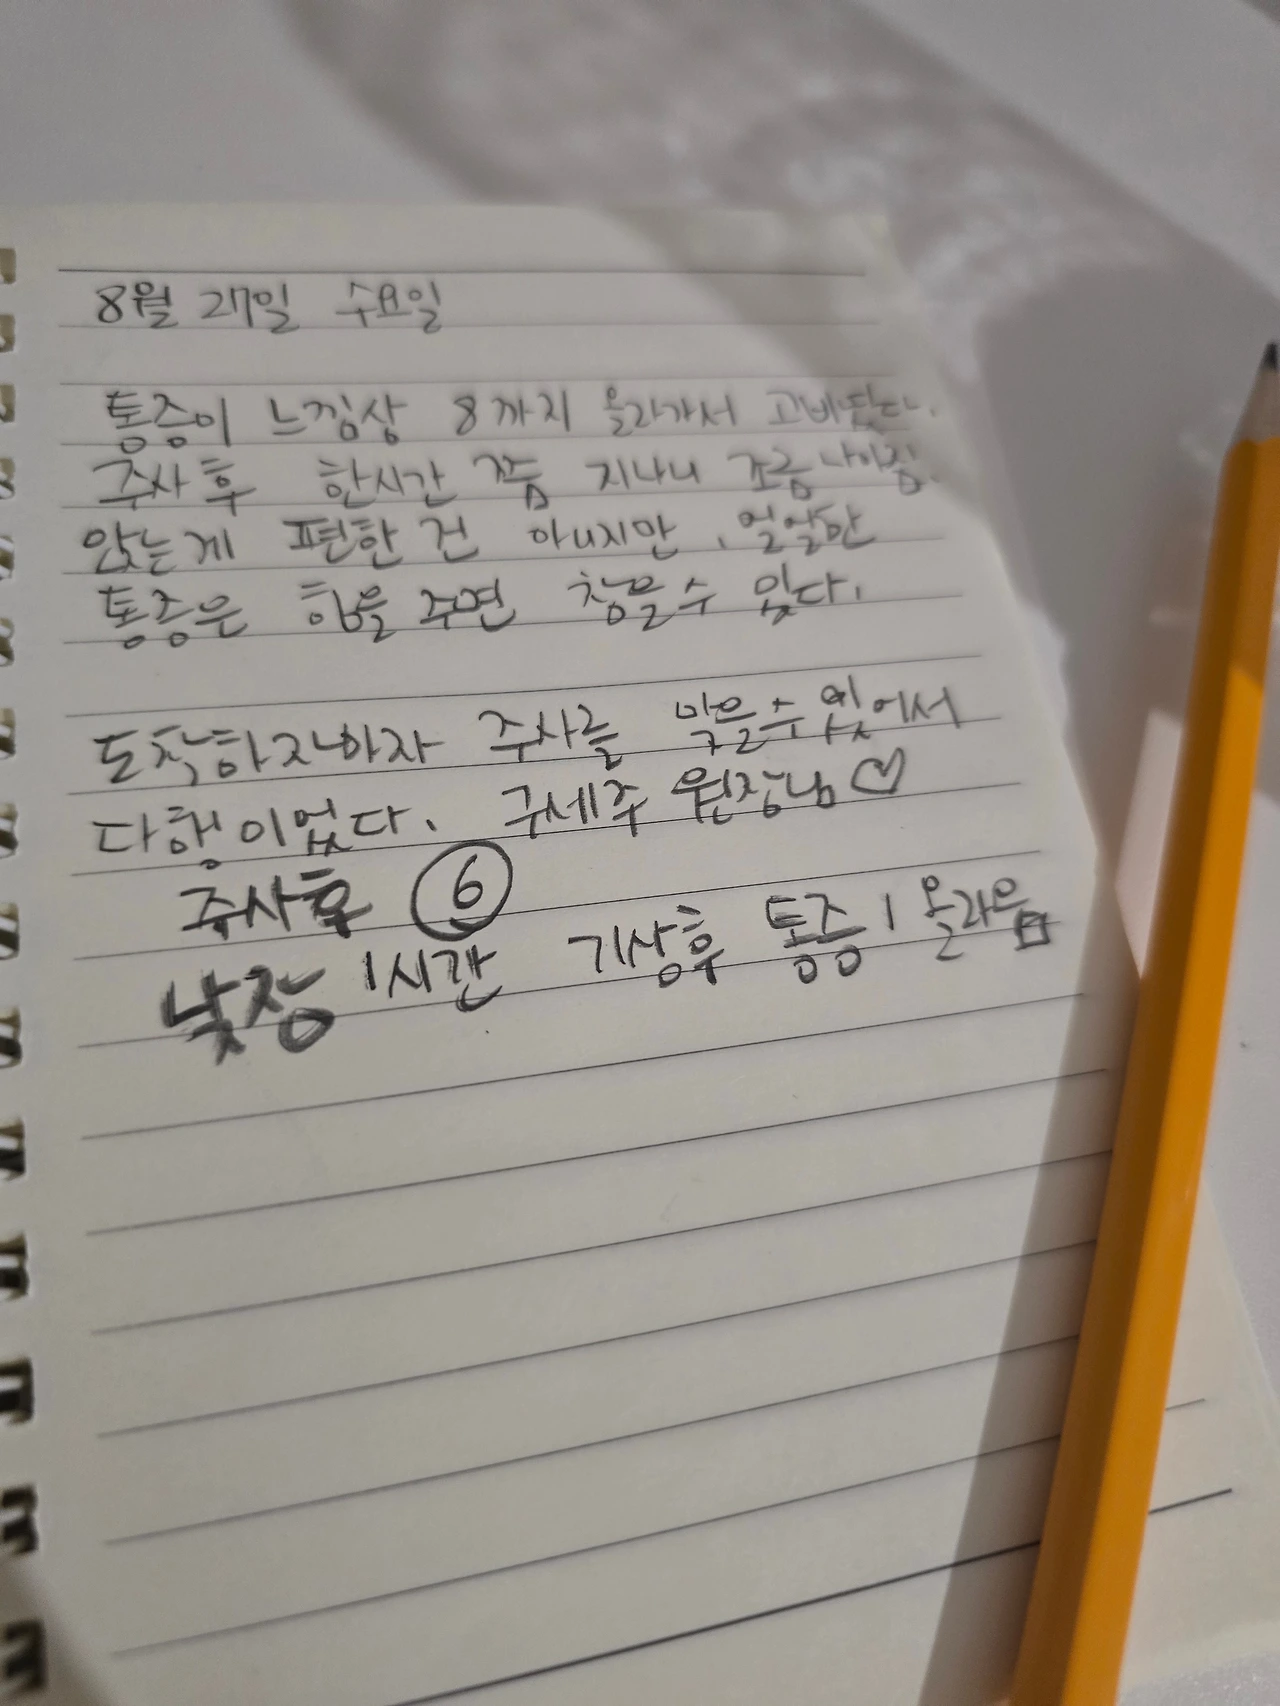 8월 27일 수요일
통증이 느낌상 8까지 올라가서 고비였다.
주사 후 한시간 쯤 지나니 조금 나아짐.
앉는게 편한 건 아니지만, 얼얼한
통증은 힘을 주면 참을수 있다.
도착하자마자 주사를 맞을수있어서
다행이었다. 구세주 원장님♡
주사후 ⑥
낮잠 1시간 기상후 통증 1 올라옴